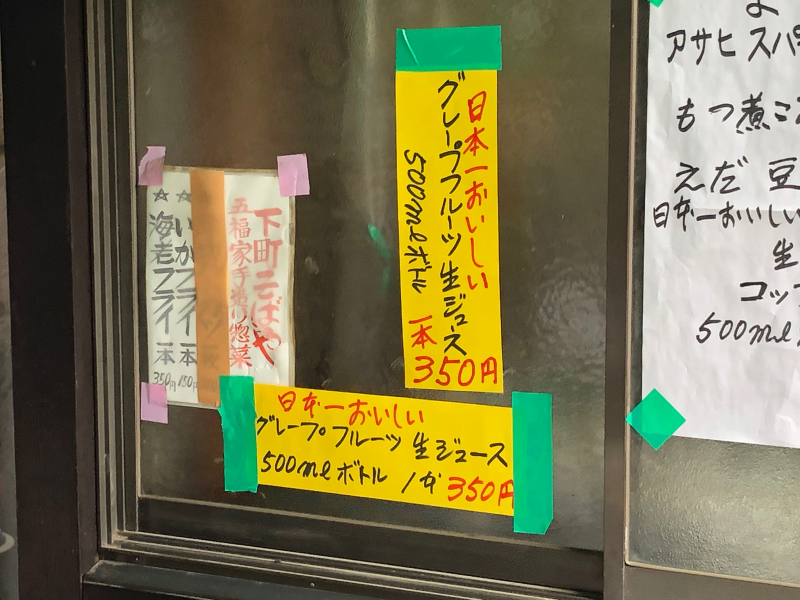 下町こばや
五福家手造り惣菜
☆いかフライ一本
150円
☆海老フライ一本
350円
日本一おいしい
グレープフルーツ生ジュース
500mlボトル 一本
350円
日本一おいしい
グレープフルーツ 生ジュース
500mlボトル 1本 350円
アサヒスパ
もつ煮こ
えだ豆
日本一おいしい
生
コッ
500ml